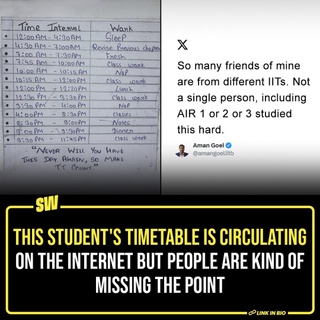 Time Interval Work
12:00 AM - 4:30AM Sleep
4:30 AM - 7:00AM Revise Previous chapters
7:00 AM - 7:30AM Fresh
7:45 AM - 10:00AM Class work
10:00 AM - 10:15AM Nap
10:15 AM - 12:00PM Class work
12:00PM - 12:30PM Lunch
12:30PM - 3:30PM Class work
3:30PM - 4:00PM Nap
4:00PM - 8:30PM Classes
8:30PM - 9:00PM Notes
9:00PM - 9:30PM Dinner
9:30PM - 11:59PM Class work
"NEVER WILL YOU HAVE
THIS DAY AGAIN, SO MAKE
IT COUNT"
X
So many friends of mine
are from different IITs. Not
a single person, including
AIR 1 or 2 or 3 studied
this hard.
Aman Goel
@amangoeliitb
SW
THIS STUDENT'S TIMETABLE IS CIRCULATING
ON THE INTERNET BUT PEOPLE ARE KIND OF
MISSING THE POINT
LINK IN BIO